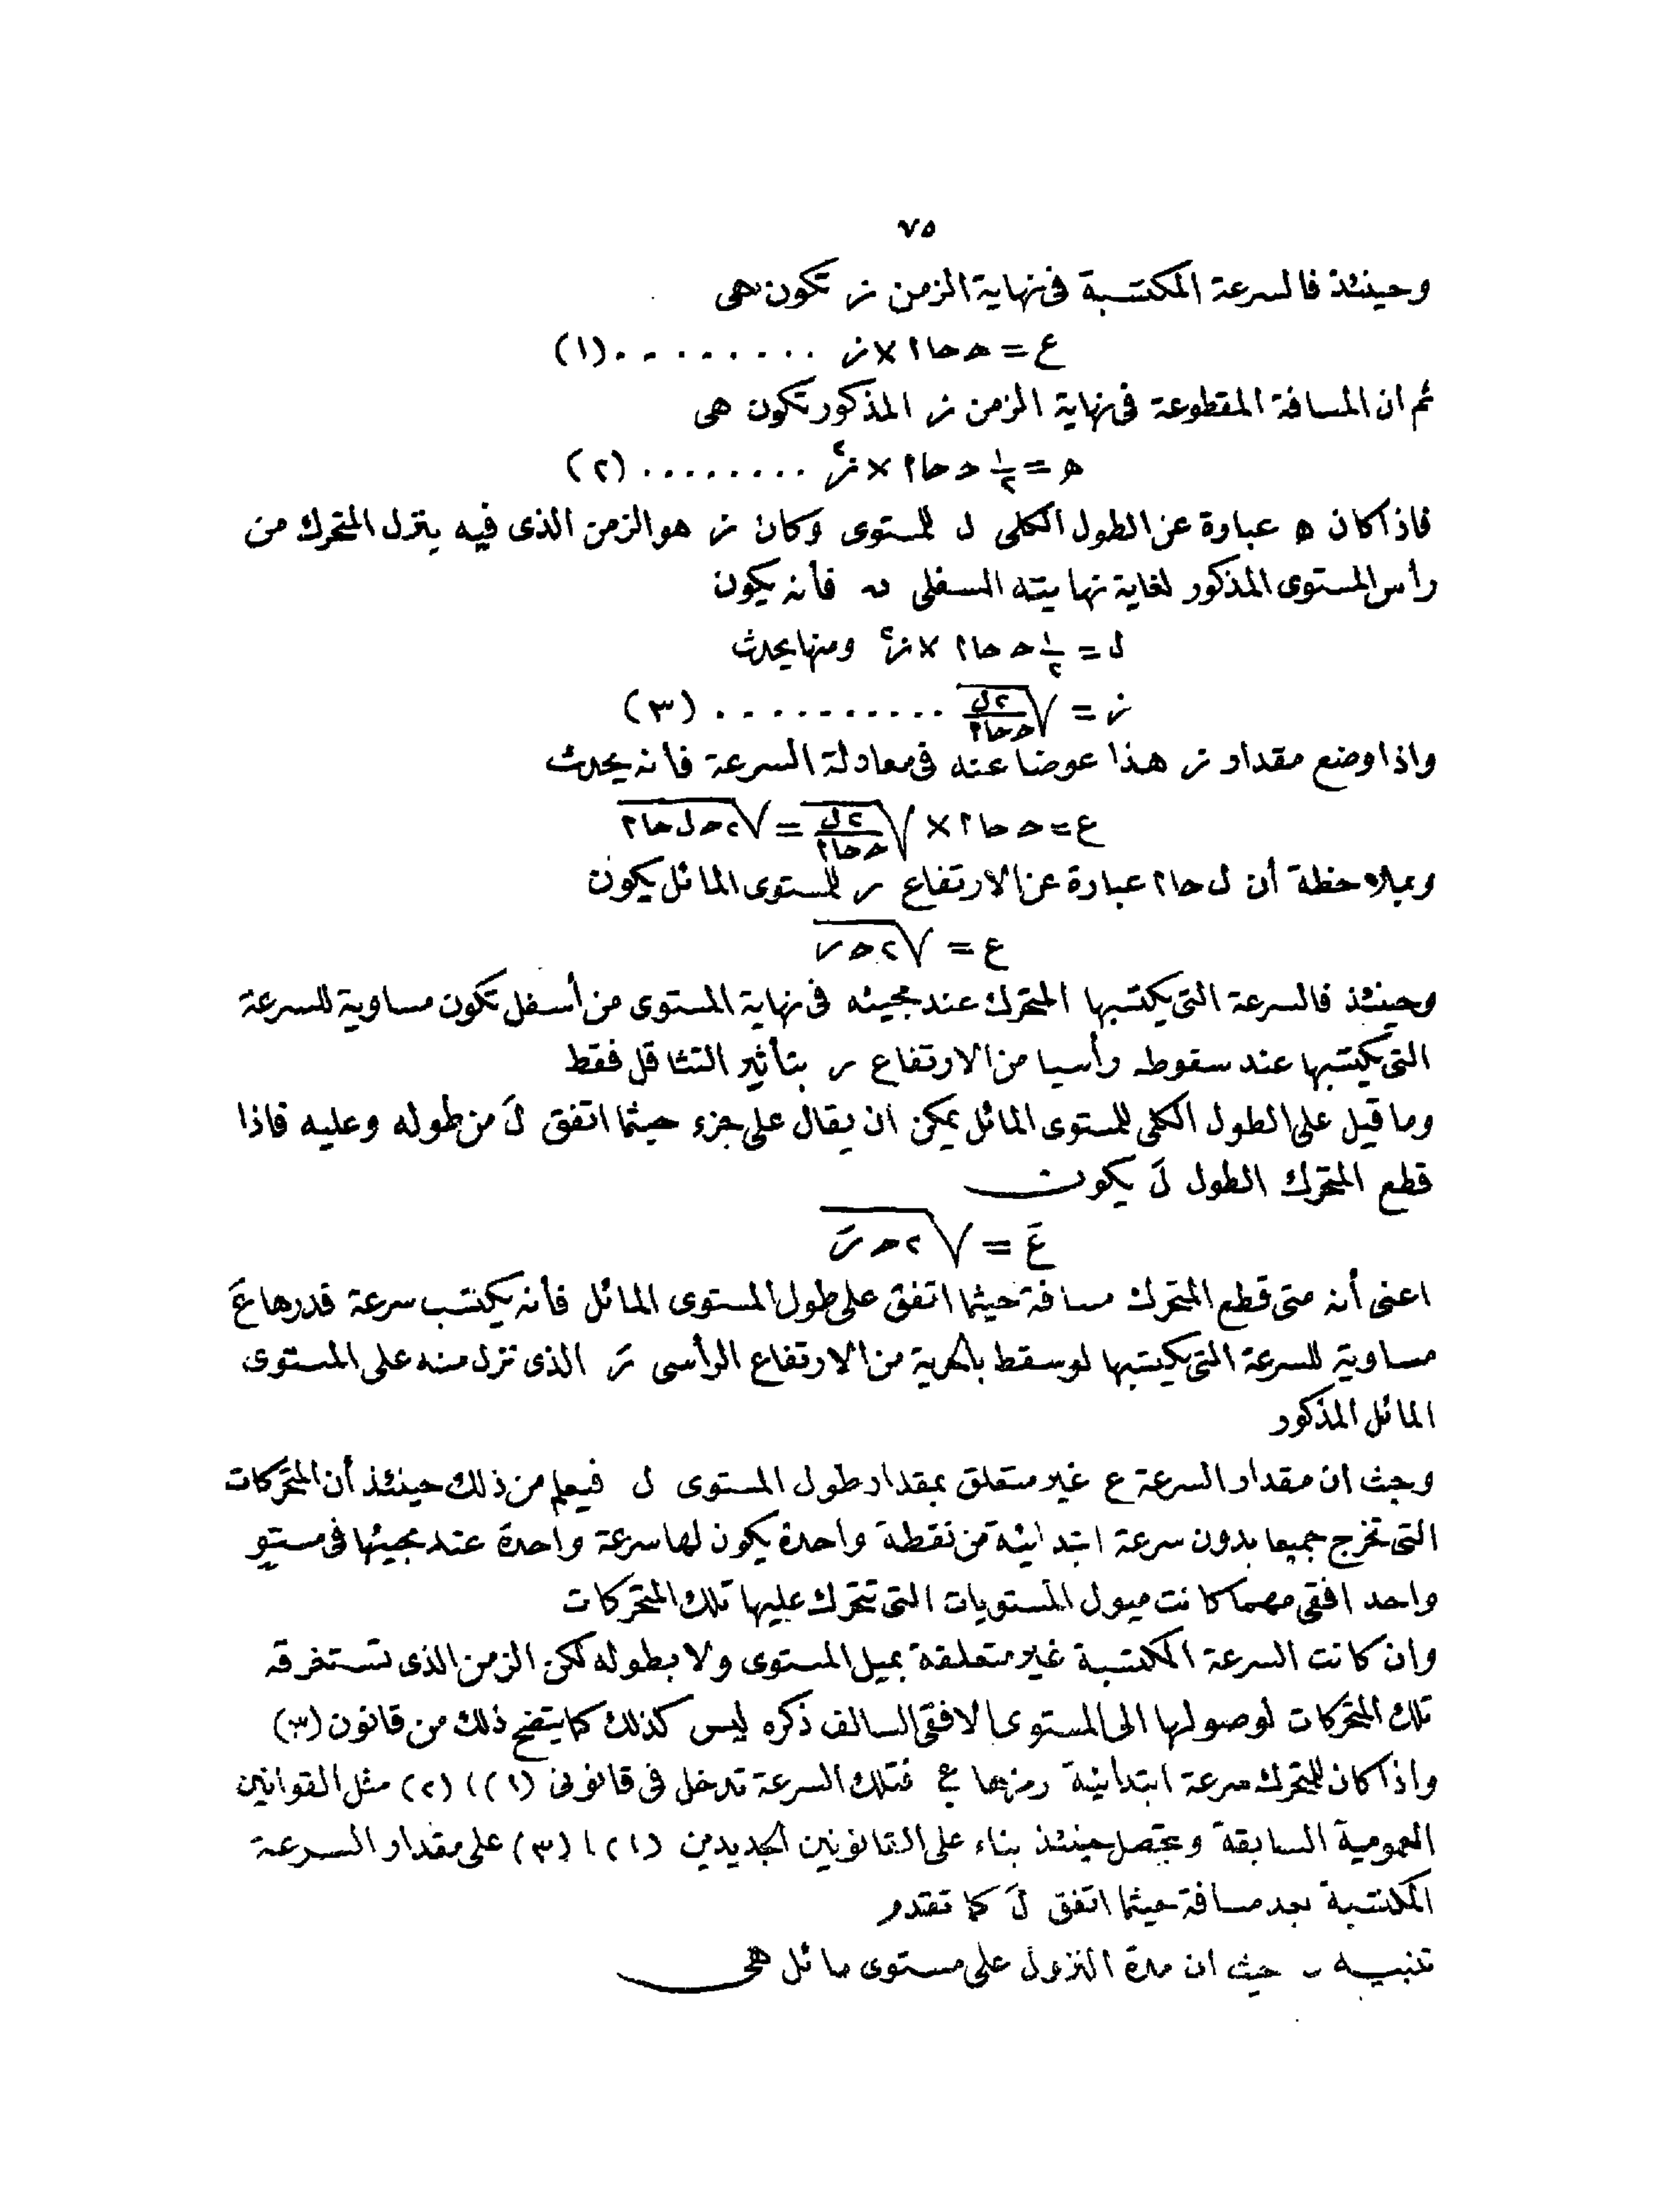 ٧٥
وحينئذ فالسرعة المكتسبة فى نهاية الزمن ز تكون هى
ع = ح حا ا × ز ......... (١)
ثم ان المسافة المقطوعة فى نهاية الزمن ز المذكور تكون هى
ه = ١/٢ ح حا ا × ز٢ ........ (٢)
فاذا كان ه عبارة عن الطول الكلى ل للمستوى وكان ز هو الزمن الذى فيه ينزل المتحرك من
رأس المستوى المذكور لغاية نهايته السفلى ب فأنه يكون
ل = ١/٢ ح حا ا × ز٢ ومنها يحدث
ز = √(٢ل/ح حا ا) .......... (٣)
واذا وضع مقدار ز هذا عوضا عنه فى معادلة السرعة فأنه يحدث
ع = ح حا ا × √(٢ل/ح حا ا) = √٢ ح ل حا ا
وبملاحظة أن ل حا ا عبارة عن الارتفاع ر للمستوى المائل يكون
ع = √٢ ح ر
وحينئذ فالسرعة التى يكتسبها المتحرك عند مجيئه فى نهاية المستوى من أسفل تكون مساوية للسرعة
التى يكتسبها عند سقوطه رأسيا من الارتفاع ر بتأثير التثاقل فقط
وما قيل على الطول الكلى للمستوى المائل يمكن ان يقال على جزء حيثما اتفق لَ من طوله وعليه فاذا
قطع المتحرك الطول لَ يكون
عَ = √٢ ح رَ
اعنى أنه متى قطع المتحرك مسافة حيثما اتفق على طول المستوى المائل فأنه يكتسب سرعة قدرها عَ
مساوية للسرعة التى يكتسبها لو سقط بالحرية من الارتفاع الرأسى رَ الذى نزل منه على المستوى
المائل المذكور
وحيث ان مقدار السرعة ع غير متعلق بمقدار طول المستوى ل فيعلم من ذلك حينئذ أن المتحركات
التى تخرج جميعا بدون سرعة ابتدائية من نقطة واحدة يكون لها سرعة واحدة عند مجيئها فى مستو
واحد افقى مهما كانت ميول المستويات التى تتحرك عليها تلك المتحركات
وان كانت السرعة المكتسبة غير متعلقة بميل المستوى ولا بطوله لكن الزمن الذى تستغرقه
تلك المتحركات لوصولها الى المستوى الافقى السالف ذكره ليس كذلك كما يتضح ذلك من قانون (٣)
واذا كان للمتحرك سرعة ابتدائية رمزها ع فتلك السرعة تدخل فى قانونى (١) ا (٢) مثل القوانين
العمومية السابقة ويتحصل حينئذ بناء على القانونين الجديدين (١) ا (٣) على مقدار السرعة
المكتسبة بعد مسافة حيثما اتفق لَ كما تقدم
تنبيه - حيث ان مدة النزول على مستوى مائل هى